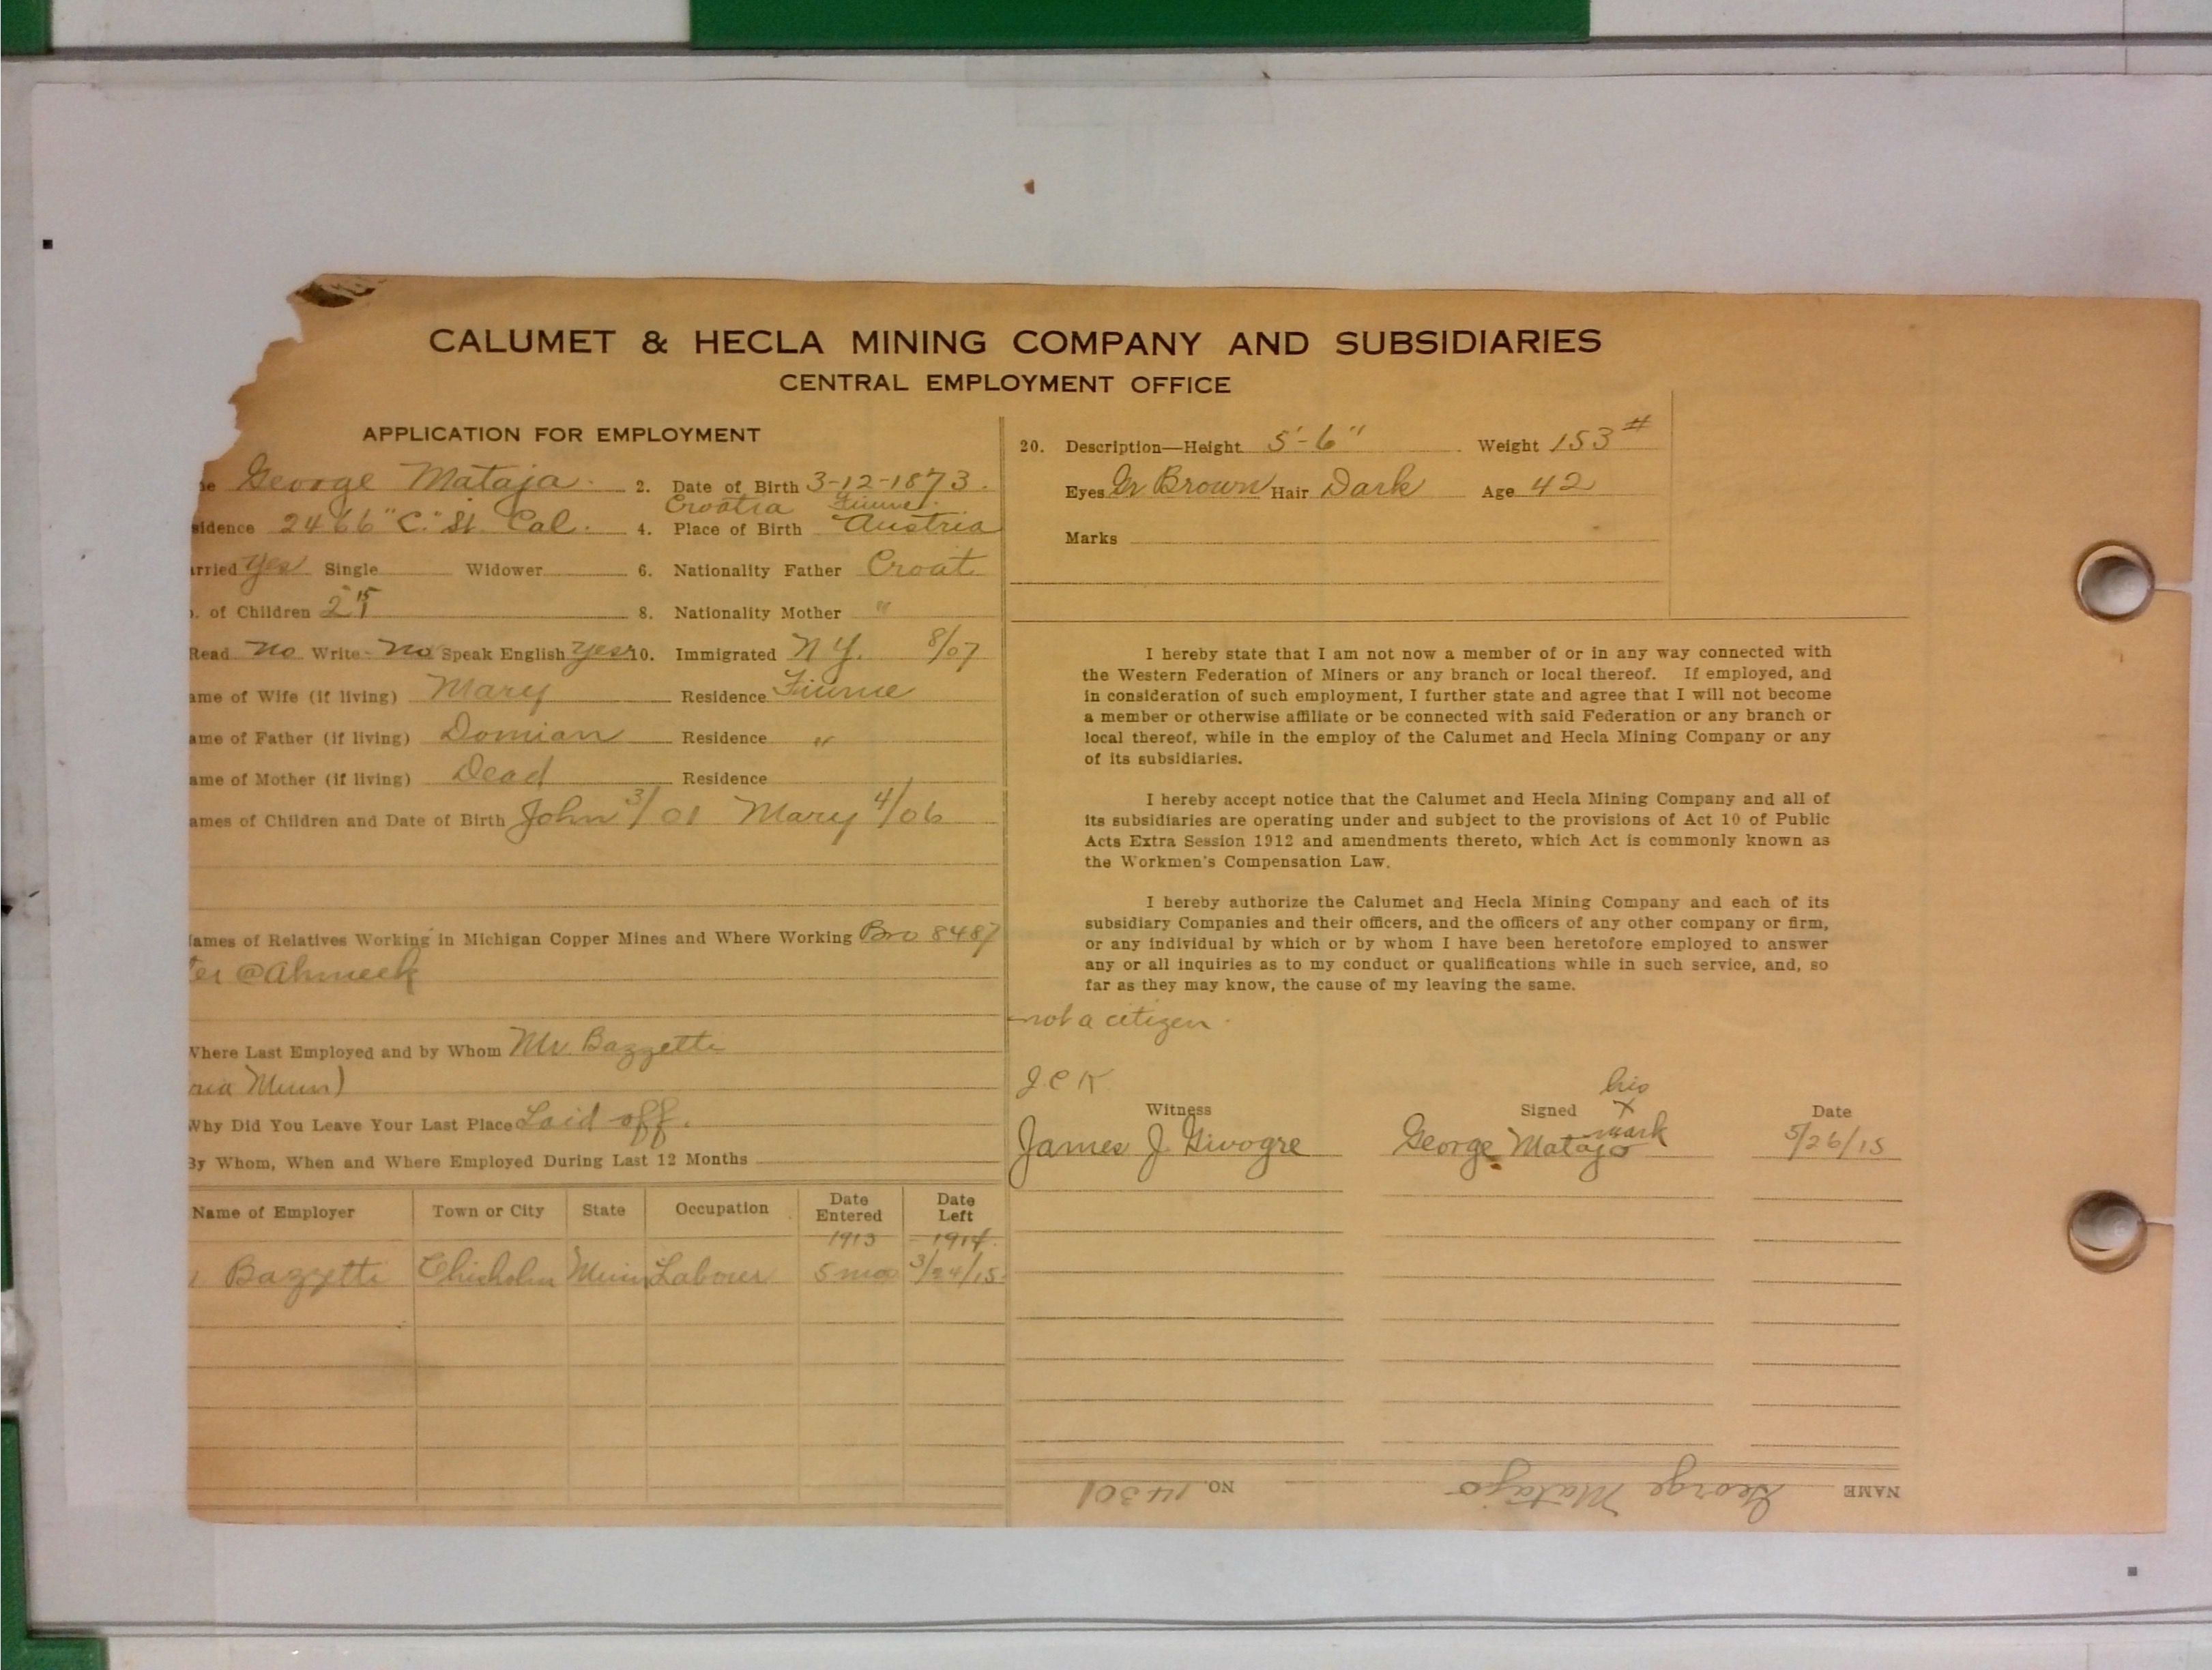 CALUMET & HECLA MINING COMPANY AND SUBSIDIARIES
CENTRAL EMPLOYMENT OFFICE
APPLICATION FOR EMPLOYMENT
George Mataja. 2. Date of Birth 3-12-1873.
Croatia Fiume.
sidence 2466 "C." St. Cal. 4. Place of Birth Austria
rried Yes Single Widower 6. Nationality Father Croat
. of Children 2 8. Nationality Mother "
Read no Write- no Speak English yes 10. Immigrated N Y. 8/07
ame of Wife (if living) Mary Residence Fiume
ame of Father (if living) Domian Residence "
ame of Mother (if living) Dead Residence
ames of Children and Date of Birth John 3/01 Mary 4/06
ames of Relatives Working in Michigan Copper Mines and Where Working Bro 8487
ter @ Ahmeek
Where Last Employed and by Whom Mr. Bazzette
Minn)
Why Did You Leave Your Last Place Laid off.
By Whom, When and Where Employed During Last 12 Months
Name of Employer Town or City State Occupation Date Entered Date Left
1913 - 1914.
Bazzette Chisholm Minn Labourer 5 mos 3/24/15.
20. Description—Height 5'-6" Weight 153#
Eyes Gr Brown Hair Dark Age 42
Marks
I hereby state that I am not now a member of or in any way connected with
the Western Federation of Miners or any branch or local thereof. If employed, and
in consideration of such employment, I further state and agree that I will not become
a member or otherwise affiliate or be connected with said Federation or any branch or
local thereof, while in the employ of the Calumet and Hecla Mining Company or any
of its subsidiaries.
I hereby accept notice that the Calumet and Hecla Mining Company and all of
its subsidiaries are operating under and subject to the provisions of Act 10 of Public
Acts Extra Session 1912 and amendments thereto, which Act is commonly known as
the Workmen's Compensation Law.
I hereby authorize the Calumet and Hecla Mining Company and each of its
subsidiary Companies and their officers, and the officers of any other company or firm,
or any individual by which or by whom I have been heretofore employed to answer
any or all inquiries as to my conduct or qualifications while in such service, and, so
far as they may know, the cause of my leaving the same.
not a citizen.
J.C.K. his
Witness Signed X Date
mark
James J. Givogre George Matajo 5/26/15
NAME George Matajo NO. 14301